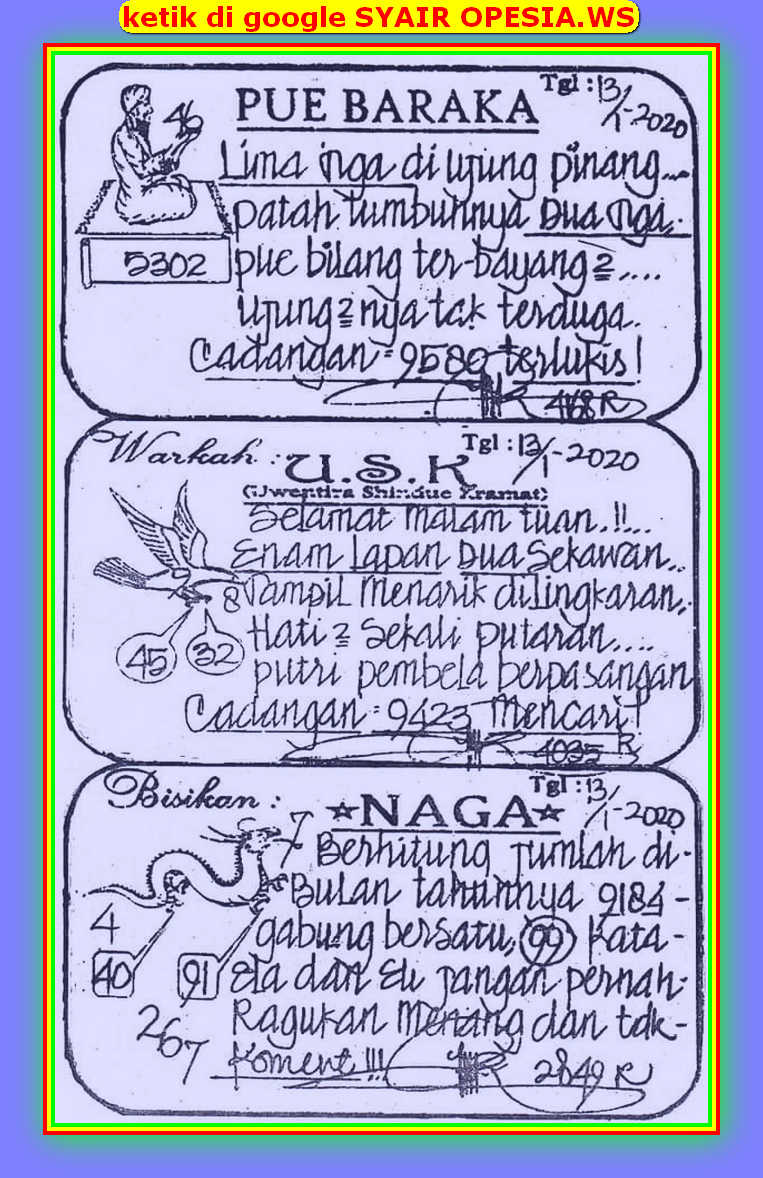 ketik di google SYAIR OPESIA.WS
PUE BARAKA
Tgl : 13/1-2020
46
5302
Lima tiga di ujung pinang...
patah tumbuhnya Dua tiga,.
pue bilang ter-bayang 2....
ujung 2 nya tak terduga.
Cadangan = 9580 terlukis!
468 R
Warkah :
U.S.K
Tgl : 13/1-2020
(Uwentira Shindue Kramat)
Selamat malam tuan.!!...
Enam Lapan Dua Sekawan..
8 Tampil Menarik dilingkaran,.
Hati 2 Sekali putaran....
putri pembela berpasangan
45
32
Cadangan = 9423 Mencari!
4035 R
Bisikan :
NAGA
Tgl : 13/1-2020
7
Berhitung jumlah di-
Bulan tahunnya 9184-
gabung bersatu, 99 Kata-
Ela dan Eli jangan pernah-
Ragukan Menang dan tdk-
Koment !!!
4
40
91
267
2849 R